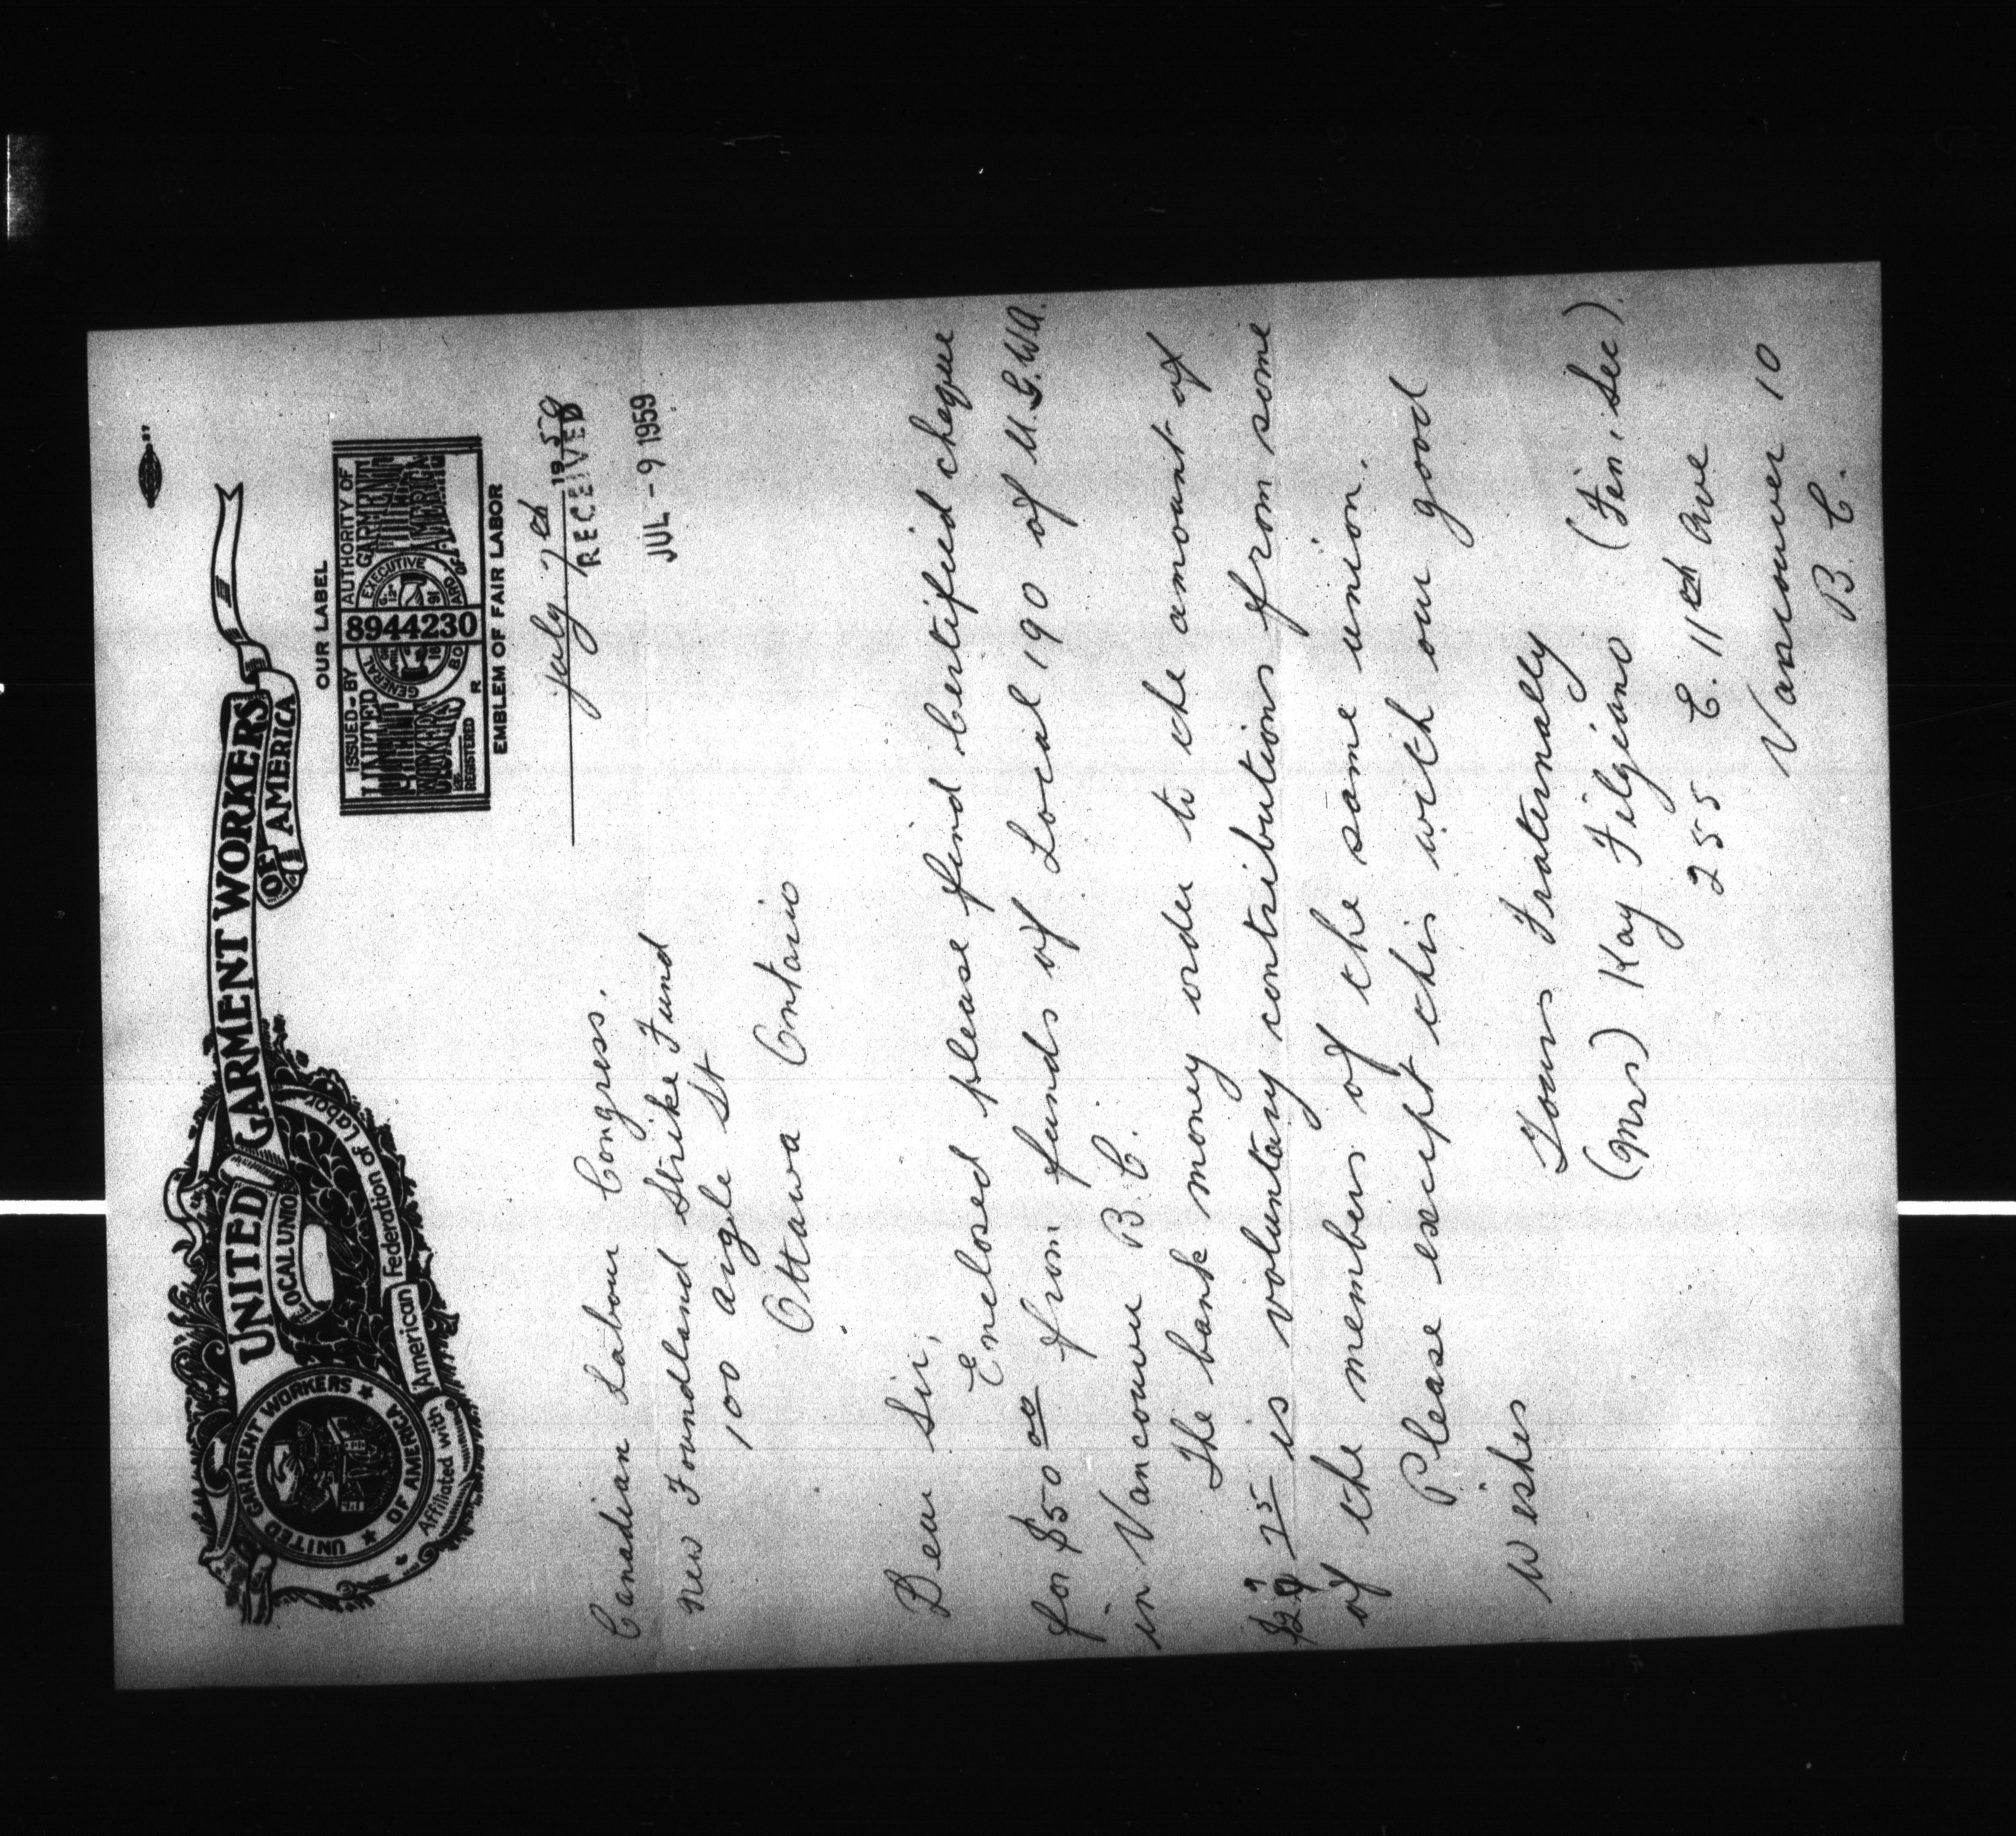 UNITED GARMENT WORKERS
OF AMERICA
LOCAL UNION
UNITED GARMENT WORKERS OF AMERICA
Affiliated with American Federation of Labor
OUR LABEL
ISSUED BY AUTHORITY OF
UNITED GARMENT
WORKERS AMERICA
GENERAL EXECUTIVE BOARD OF
8944230
REGISTERED
EMBLEM OF FAIR LABOR
July 7th 1959
RECEIVED
JUL - 9 1959
Canadian Labour Congress.
New Foundland Strike Fund
100 Argle St
Ottawa Ontario
Dear Sir,
Enclosed please find Certified cheque
for $50 00 from funds of Local 190 of U.G.W.A.
in Vancouver B.C.
The bank money order to the amount of
75 is voluntary contributions from some
of the members of the same union.
Please except this with our good
wishes
Yours Fraternally
(Mrs) Kay Filgiano (Fin. Sec)
255 E. 11th Ave
Vancouver 10
B.C.